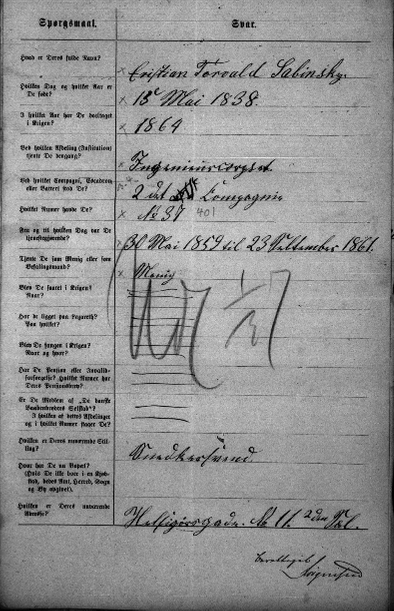 Spørgsmaal. Svar.
Hvad er Deres fulde Navn?
Cristian Torvald Sabinsky.
Hvilken Dag og hvilket Aar er
De født?
15 Mai 1838.
I hvilke Aar har De deeltaget
i Krigen?
1864
Ved hvilken Afdeling (Institution)
tjente De dengang?
Ingenieurcorpset.
Ved hvilket Compagni, Escadron
eller Batteri stod De?
2det Compagnie
Hvilket Numer havde De?
No 37 401
Fra og til hvilken Dag var De
30 Mai 1859 til 23 September 1861.
Tjente De som Menig eller som
Befalingsmand?
Menig
Blev De saaret i Krigen?
Naar?
Har De ligget paa Lazareth?
Paa hvilket?
Blev De fangen i Krigen?
Naar og hvor?
Har De Pension eller Invalid-
forsørgelse? Hvilket Numer har
Deres Pensionsbrev?
Er De Medlem af „De danske
Vaabenbrødres Selskab"?
I hvilken af dettes Afdelinger
og i hvilket Numer staaer De?
Hvilken er Deres nuværende Stil-
ling?
Snedkersvend.
Hvor har De nu Bopæl?
Hvilken er Deres nuværende
Adresse?
Helsigørsgade. No 11. 2den Sal.